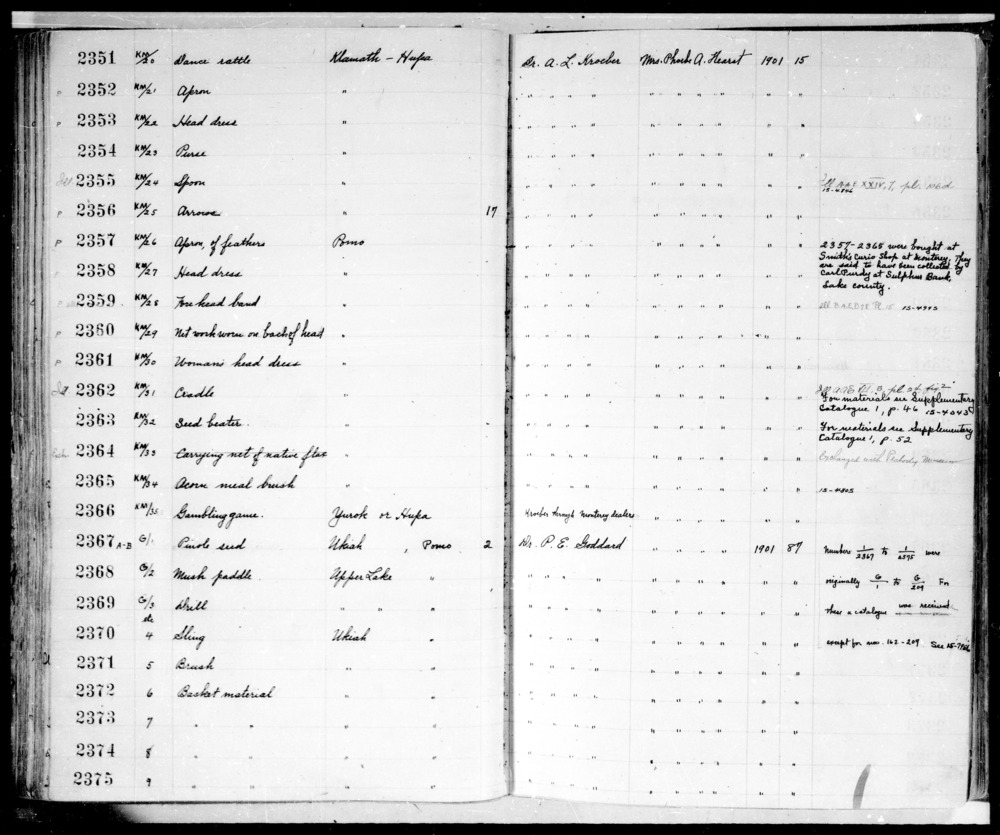 2351 KM/20 Dance rattle Klamath - Hupa Dr. A. L. Kroeber Mrs. Phoebe A. Hearst 1901 15
P 2352 KM/21 Apron " " " " " " " " " " "
P 2353 KM/22 Head dress " " " " " " " " " " "
2354 KM/23 Purse " " " " " " " " " " "
Ill. 2355 KM/24 Spoon " " " " " " " " " " "
15-4846
P 2356 KM/25 Arrows " 17 " " " " " " " " " "
P 2357 KM/26 Apron, of feathers Pomo " " " " " " " " " " 2357-2365 were bought at
Smith's Curio Shop at Monterey. They
are said to have been collected by
Carl Purdy at Sulphur Bank,
Lake county.
2358 KM/27 Head dress " " " " " " " " " " "
2359 KM/28 Fore head band " " " " " " " " " " "
P 2360 KM/29 Net work worn on back of head " " " " " " " " " " "
P 2361 KM/30 Woman's head dress " " " " " " " " " " "
Ill 2362 KM/31 Cradle " " " " " " " " " " "
For materials see Supplementary
Catalogue 1, p. 46 15-4043
2363 KM/32 Seed beater. " " " " " " " " " " " For materials see Supplementary
Catalogue 1, p. 52
2364 KM/33 Carrying net of native flax " " " " " " " " " " " Exchanged with Peabody Museum
2365 KM/34 Acorn meal brush " " " " " " " " " " " 15-4805
2366 KM/35. Gambling game. Yurok or Hupa Kroeber through Monterey dealers " " " " " "
2367 A-B G/1 Pinole seed Ukiah, Pomo 2 Dr. P. E. Goddard " " " " 1901 87 Numbers 1/2367 to 1/2575 were
2368 G/2 Mush paddle Upper Lake " " " " " " " " " " " originally G/1 to G/209 For
2369 G/3 Drill " " " " " " " " " " " " " these a catalogue was received
etc
2370 4 Sling Ukiah " " " " " " " " " " " except for nos. 162-209.
2371 5 Brush " " " " " " " " " " " "
2372 6 Basket material " " " " " " " " " " " "
2373 7 " " " " " " " " " " " " " "
2374 8 " " " " " " " " " " " " " "
2375 9 " " " " " " " " " " " " " "